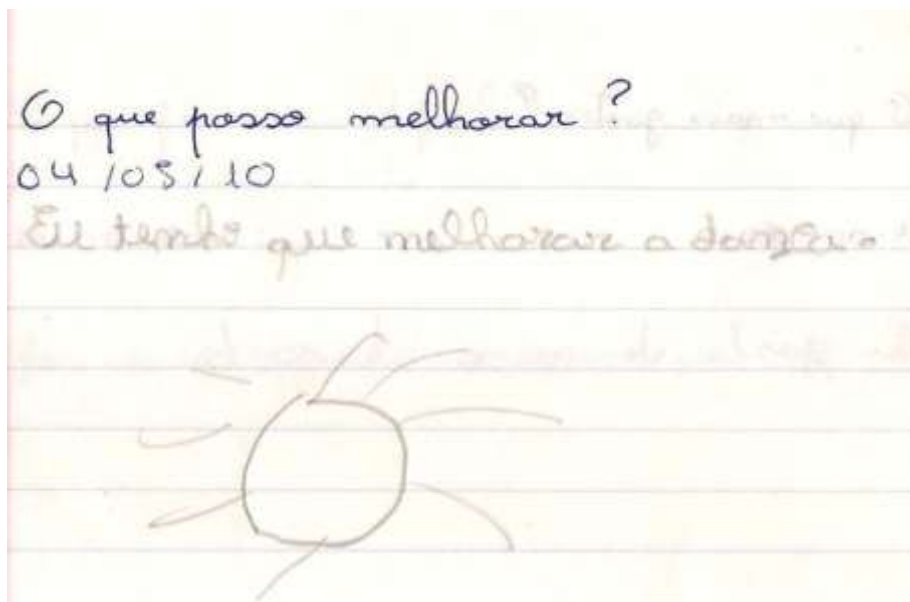 O que posso melhorar?
04/05/10
Eu tenho que melhorar a dançar.